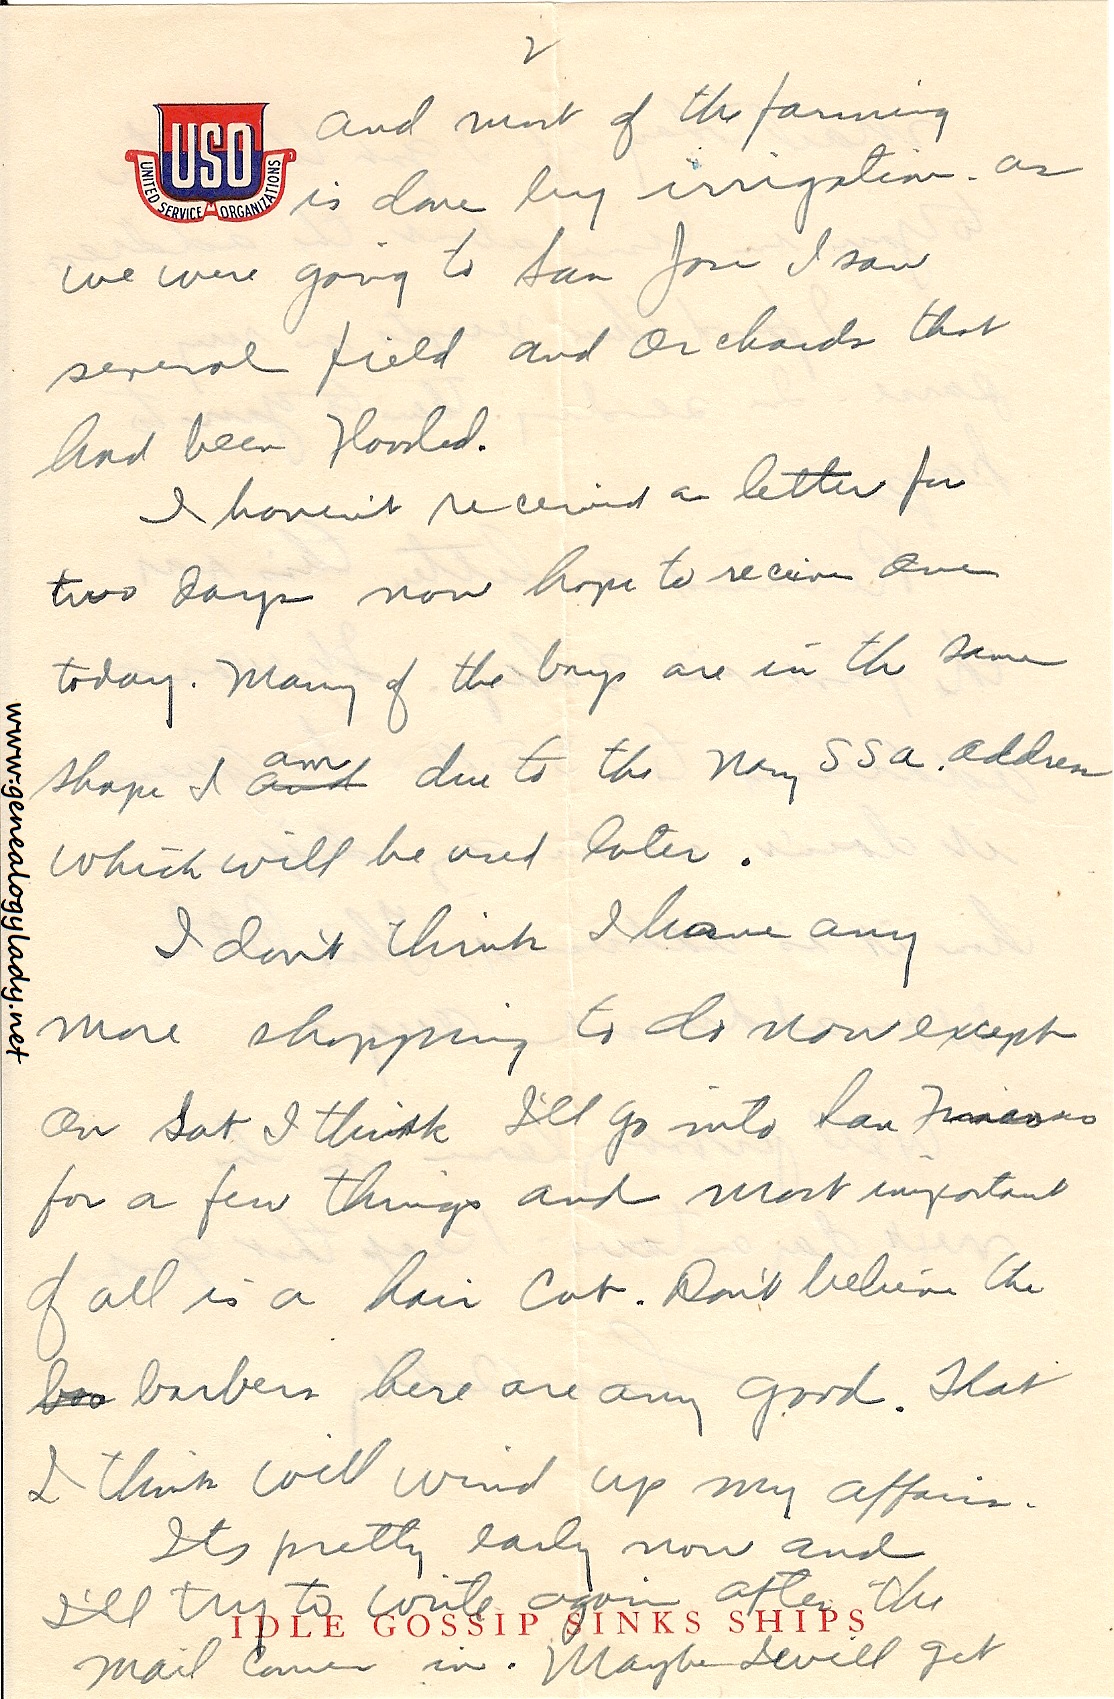 2
USO
UNITED SERVICE ORGANIZATIONS
and most of the farming
is done by irrigation. as
we were going to San Jose I saw
several field and orchards that
had been flooded.
I haven't received a letter for
two days now hope to receive one
today. Many of the boys are in the same
shape I and am due to the Navy SSA. address
which will be used later.
I don't think I have any
more shopping to do now except
on Sat I think I'll go into San Francisco
for a few things and most important
of all is a hair cut. Don't believe the
barbers here are any good. That
I think will wind up my affairs.
Its pretty early now and
I'll try to write again after the
IDLE GOSSIP SINKS SHIPS
mail comes in. Maybe I will get
www.genealogylady.net